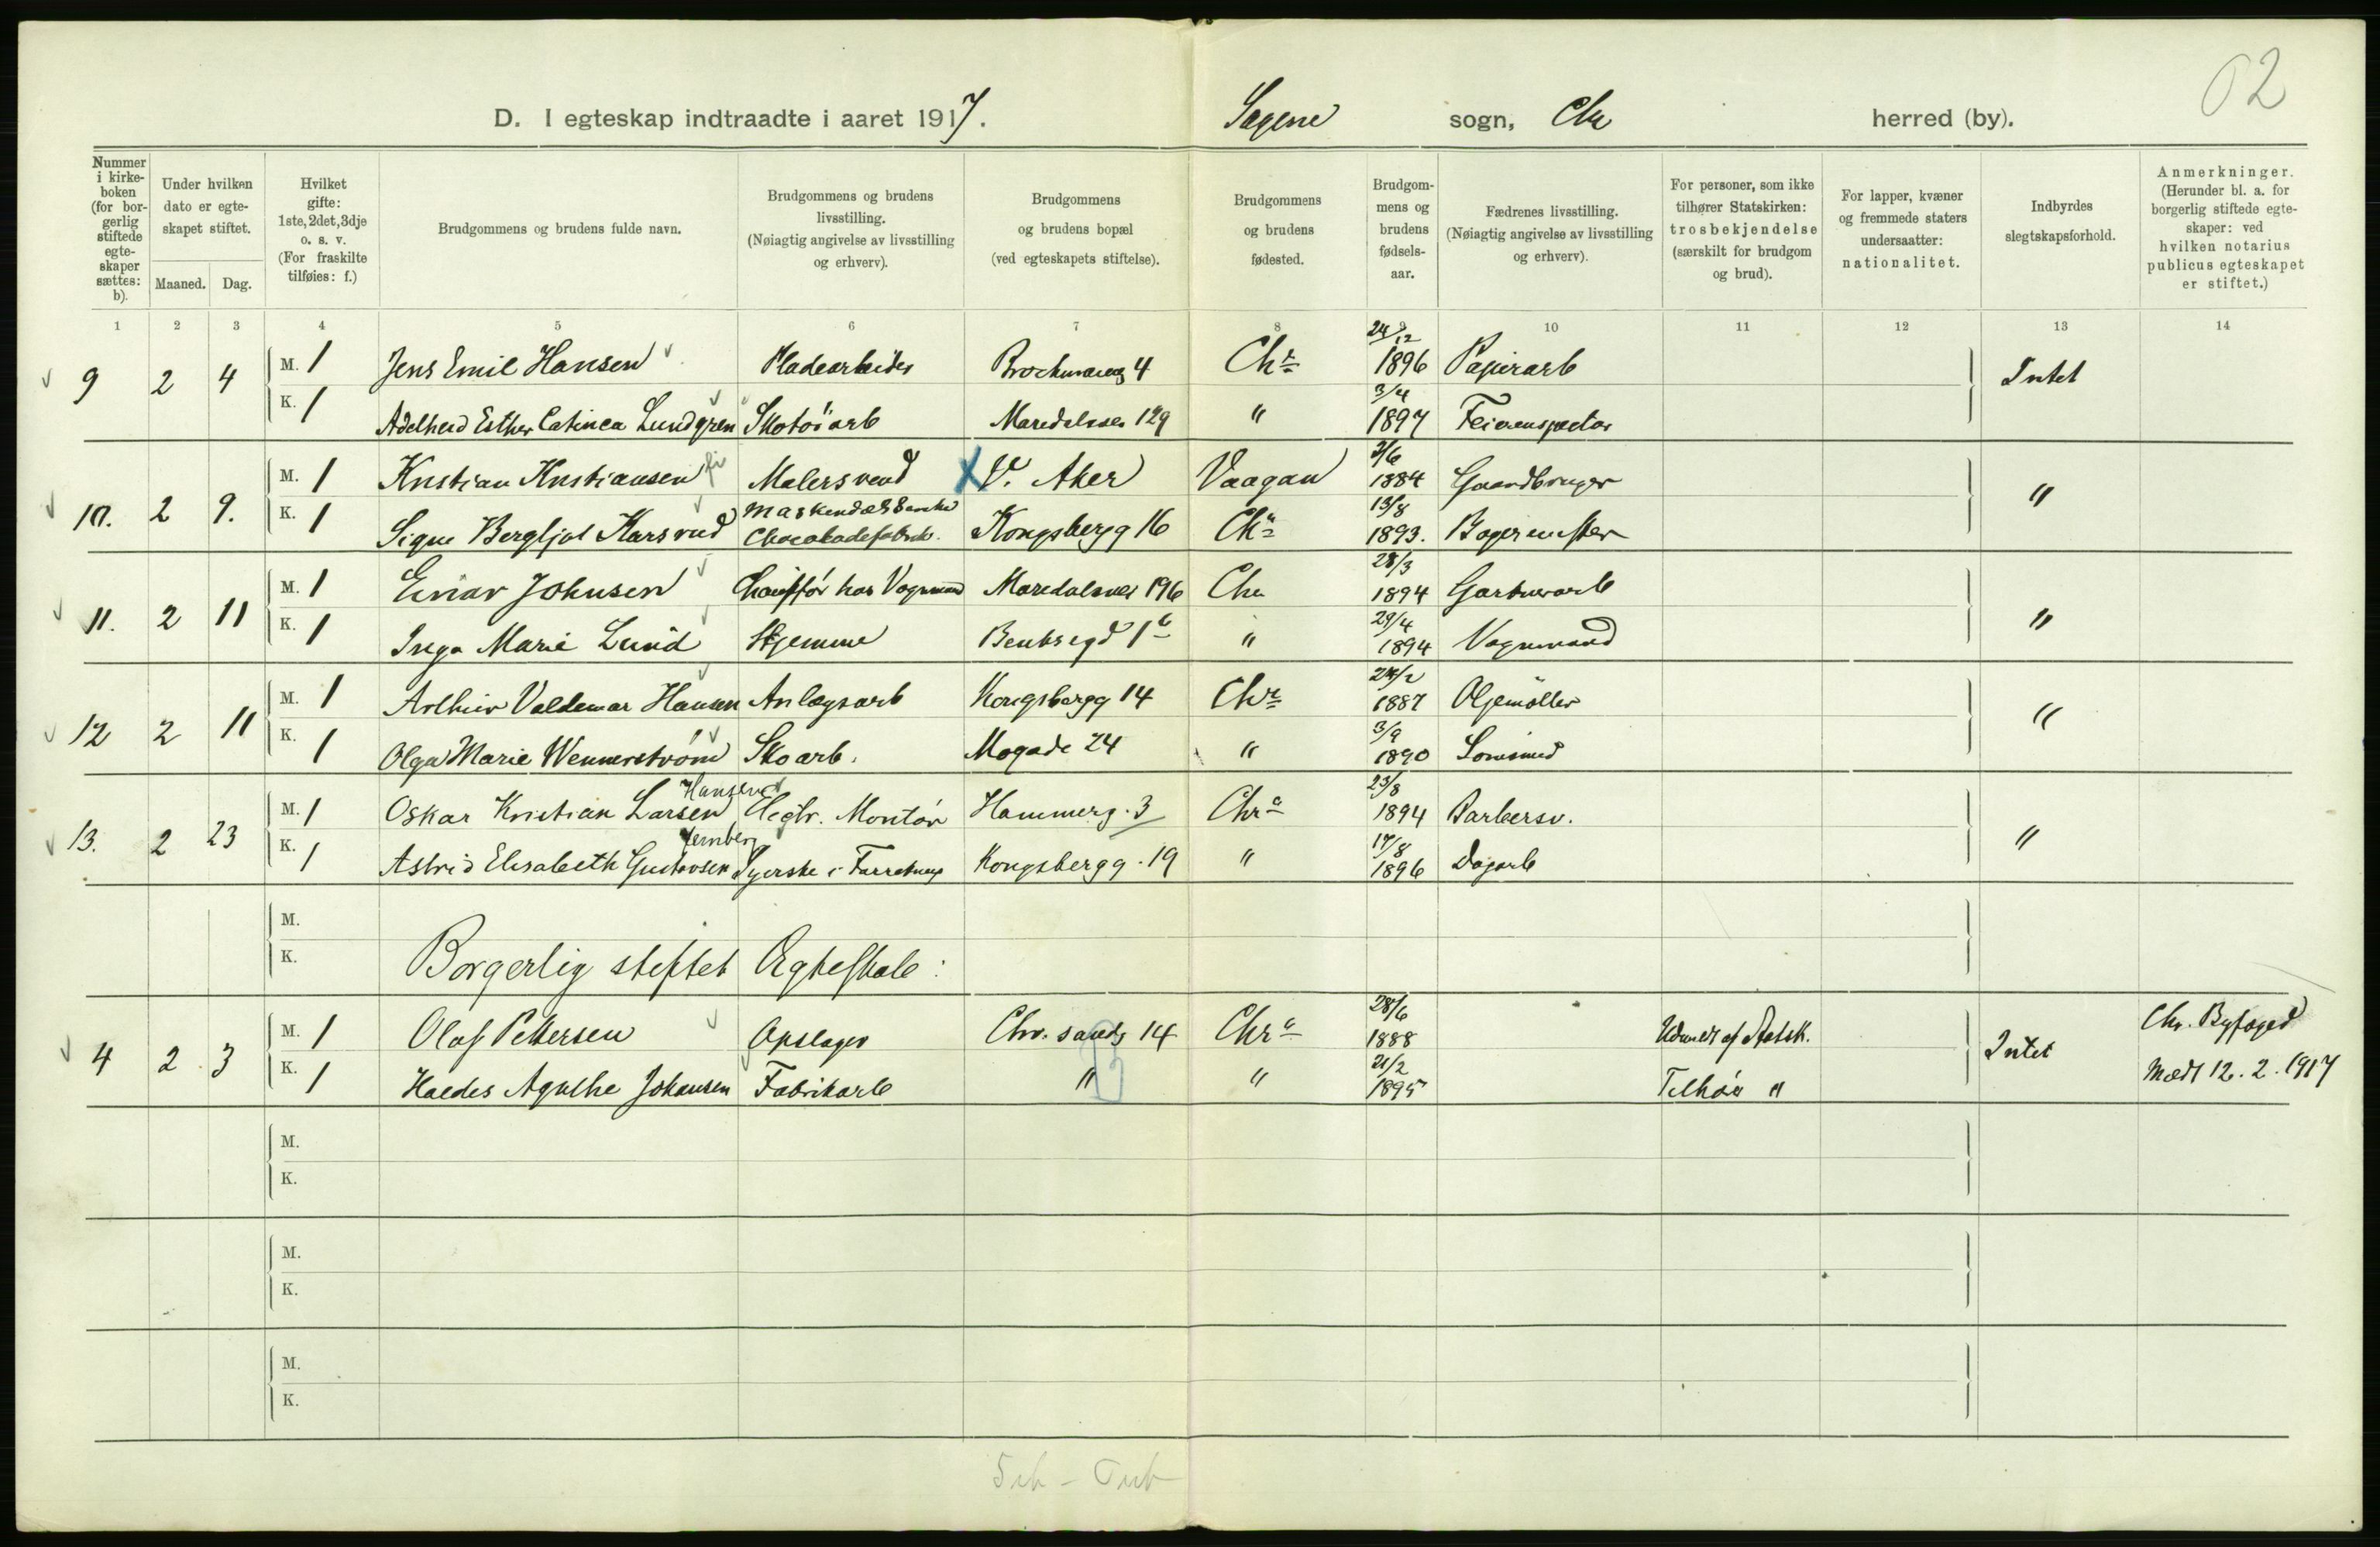 02
D. I egteskap indtraadte i aaret 1917. Sagene sogn, Chr herred (by).
Nummer i kirkeboken (for borgerlig stiftede egteskaper sættes: b).
Under hvilken dato er egteskapet stiftet.
Maaned. Dag.
Hvilket gifte: 1ste, 2det, 3dje o. s. v. (For fraskilte tilføies: f.)
Brudgommens og brudens fulde navn.
Brudgommens og brudens livsstilling. (Nøiagtig angivelse av livsstilling og erhverv).
Brudgommens og brudens bopæl (ved egteskapets stiftelse).
Brudgommens og brudens fødested.
Brudgommens og brudens fødselsaar.
Fædrenes livsstilling. (Nøiagtig angivelse av livsstilling og erhverv).
For personer, som ikke tilhører Statskirken: trosbekjendelse (særskilt for brudgom og brud).
For lapper, kvæner og fremmede staters undersaatter: nationalitet.
Indbyrdes slegtskapsforhold.
Anmerkninger. (Herunder bl. a. for borgerlig stiftede egteskaper: ved hvilken notarius publicus egteskapet er stiftet.)
1 2 3 4 5 6 7 8 9 10 11 12 13 14
9 2 4 M. 1 Jens Emil Hansen Pladearbeider 4 Chr 24/12 1896 Papirarb Intet
K. 1 Adelheid Esther Catinca Lundgren Skotøiarb Maridalsvei 129 " 3/4 1897
10. 2 9. M. 1 Kristian Kristiansen Malersvend V. Aker Vaagan 2/6 1884 Gaardbruger "
K. 1 Signe Bergljot Karsrud Chocoladefabrik. Kongsbergg 16 Chra 13/8 1893. Bagermester
11. 2 11 M. 1 Einar Johnsen Chauffør hos Vognmand Maridalsvei 196 Chr 28/3 1894 Gartnerarb "
K. 1 Inga Marie Lund Hjemme Bentsegd 1a " 29/4 1894 Vognmand
12 2 11 M. 1 Arthur Valdemar Hansen Anlægsarb Kongsbergg 14 Chra 24/2 1887 Oljemøller "
K. 1 Olga Marie Wennerstrøm Skoarb. Mogade 24 " 3/9 1890
Hansen
13. 2 23 M. 1 Oskar Kristian Larsen Elegtr. Montør Hammerg. 3 Chra 23/8 1894 Barbersv. "
Jernberg
K. 1 Astrid Elisabeth Gustavsen Syerske i Forretning Kongsbergg. 19 " 17/8 1896 Dagarb
M.
K. Borgerlig stiftet Ægteskab:
4 2 3 M. 1 Olaf Pettersen Opslager Chr. sandg 14 Chra 28/6 1888 Udmeldt af Statsk. Intet Chr. Byfoged
K. 1 Haldis Agathe Johansen Fabrikarb " " 21/2 1895 Tilhør " Medt 12. 2. 1917
M.
K.
M.
K.
M.
K.